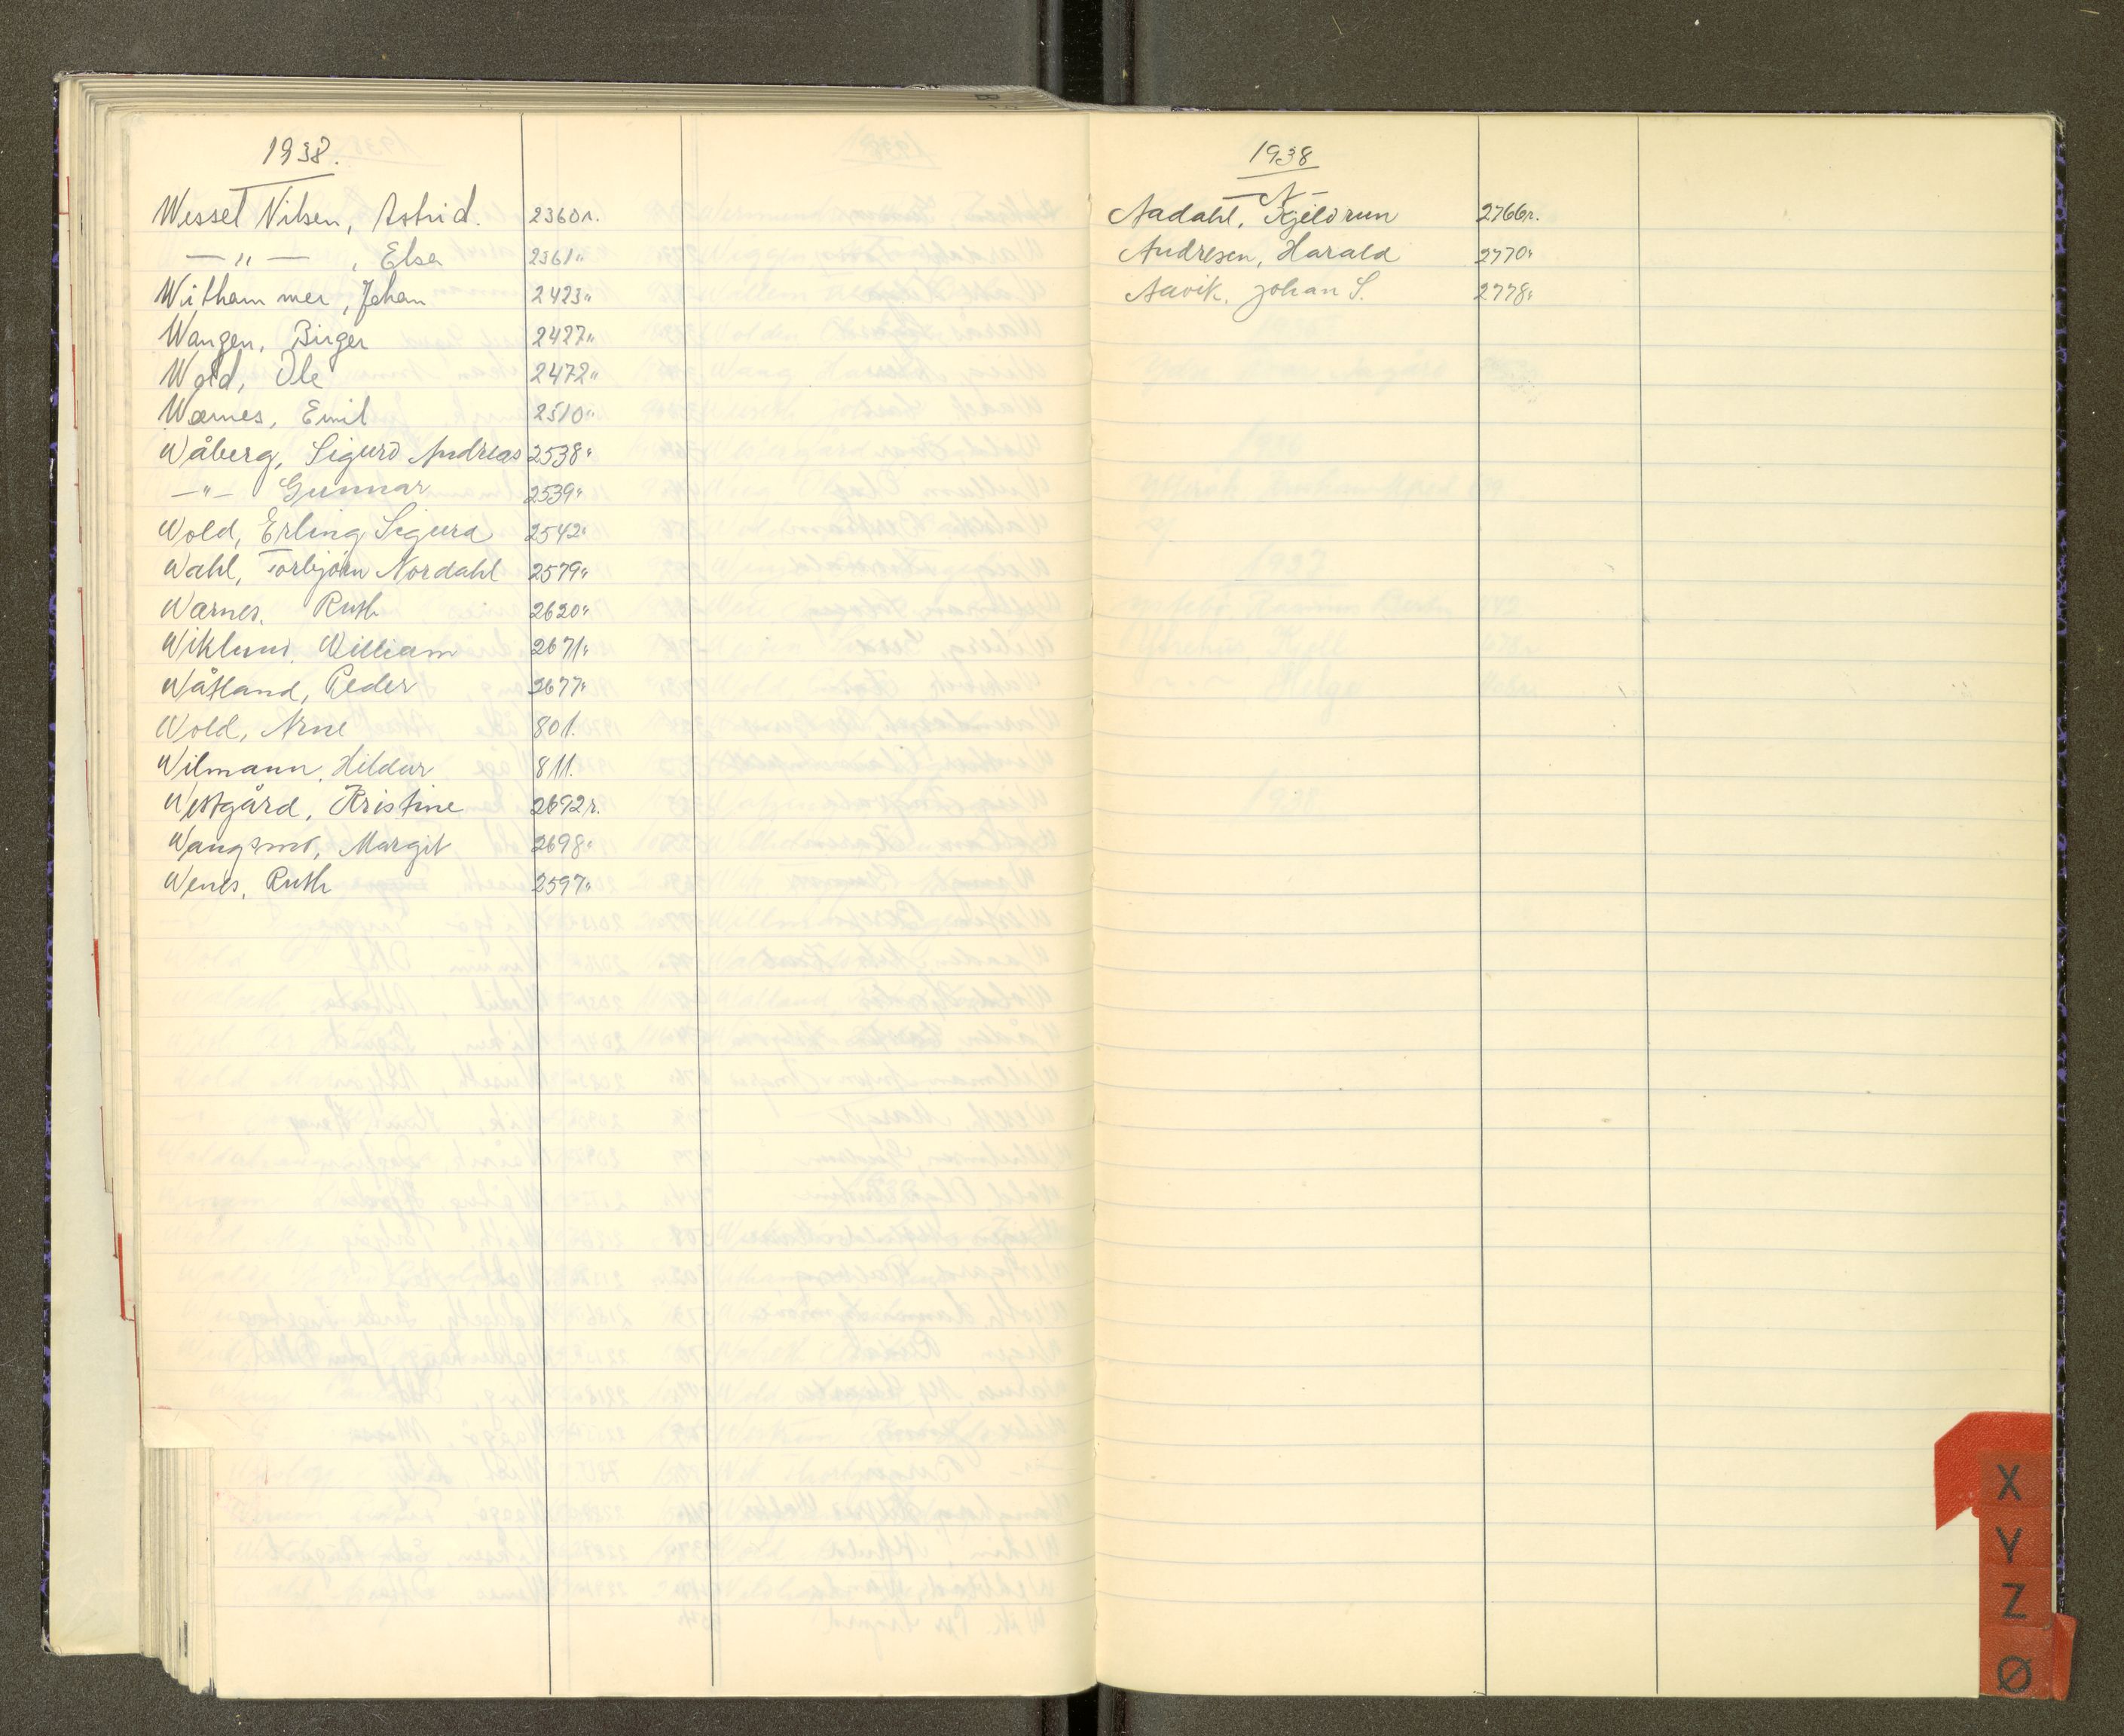 1938.
Wessel Nilsen, Astrid. 2360r.
— " — , Elsa 2361"
Withammer, Johan 2423"
Wangen, Birger 2427"
Wold, Ole 2472"
Wærnes, Emil 2510"
Wåberg, Sigurd Andreas 2538"
— " — Gunnar 2539"
Wold, Erling Sigurd 2542"
Wahl, Torbjörn Nordahl 2579"
Warnes, Ruth 2620"
Wiklund, William 2671"
Wåtland, Peder 2677"
Wold, Arne 801.
Wilmann, Hildur 811.
Westgård, Kristine 2692r.
Wangsmo, Margit 2698"
Wenes, Ruth 2597"
1938
— A —
Aadahl, Kjeldrun 2766r.
Andresen, Harald 2770"
Aavik, Johan S. 2778"
X
Y
Z
Ø